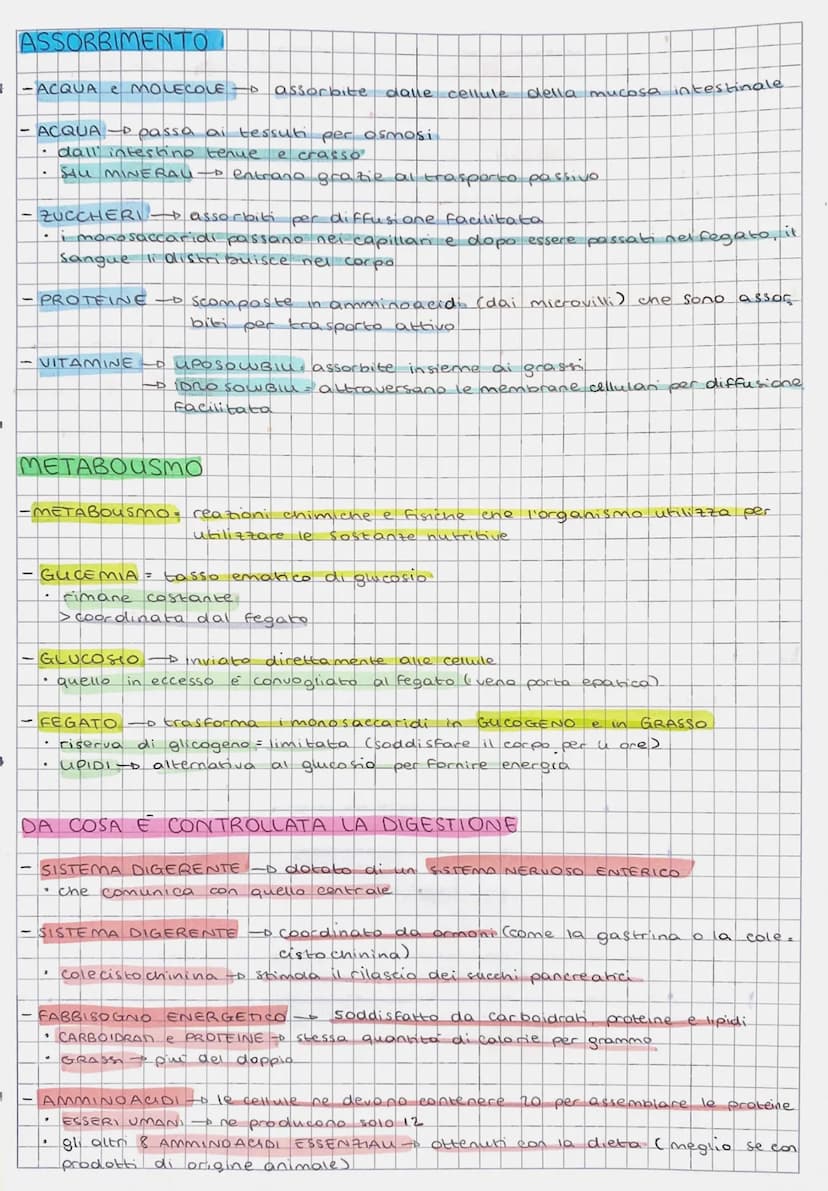 ASSORBIMENTO
- ACQUA e MOLECOLE → assorbite dalle cellule della mucosa intestinale
- ACQUA → passa ai tessuti per osmosi
· dall'intestino tenue e crasso
· SALI MINERALI → entrano grazie al trasporto passivo
- ZUCCHERI → assorbiti per diffusione facilitata
· i monosaccaridi passano nei capillari e dopo essere passati nel fegato, il
sangue li distribuisce nel corpo
- PROTEINE → scomposte in amminoacidi (dai microvilli) che sono assor
biti per trasporto attivo
- VITAMINE → LIPOSOLUBILI: assorbite insieme ai grassi
→ IDROSOLUBILI = attraversano le membrane cellulari per diffusione
facilitata
METABOLISMO
- METABOLISMO = reazioni chimiche e fisiche che l'organismo utilizza per
utilizzare le sostanze nutritive
- GLICEMIA = tasso ematico di glucosio
· rimane costante
> coordinata dal fegato
- GLUCOSIO → inviato direttamente alle cellule
· quello in eccesso è convogliato al fegato (vena porta epatica)
- FEGATO → trasforma i monosaccaridi in GLICOGENO e in GRASSO
· riserva di glicogeno = limitata (soddisfare il corpo per 4 ore)
· LIPIDI → alternativa al glucosio per fornire energia
DA COSA È CONTROLLATA LA DIGESTIONE
- SISTEMA DIGERENTE → dotato di un SISTEMA NERVOSO ENTERICO
· che comunica con quello centrale
- SISTEMA DIGERENTE → coordinato da ormoni (come la gastrina o la cole-
cistochinina)
· colecistochinina → stimola il rilascio dei succhi pancreatici
- FABBISOGNO ENERGETICO → soddisfatto da carboidrati, proteine e lipidi
· CARBOIDRATI e PROTEINE → stessa quantità di calorie per grammo
· GRASSI → piu' del doppio
- AMMINOACIDI → le cellule ne devono contenere 20 per assemblare le proteine
· ESSERI UMANI → ne producono solo 12
· gli altri 8 AMMINOACIDI ESSENZIALI → ottenuti con la dieta (meglio se con
prodotti di origine animale)